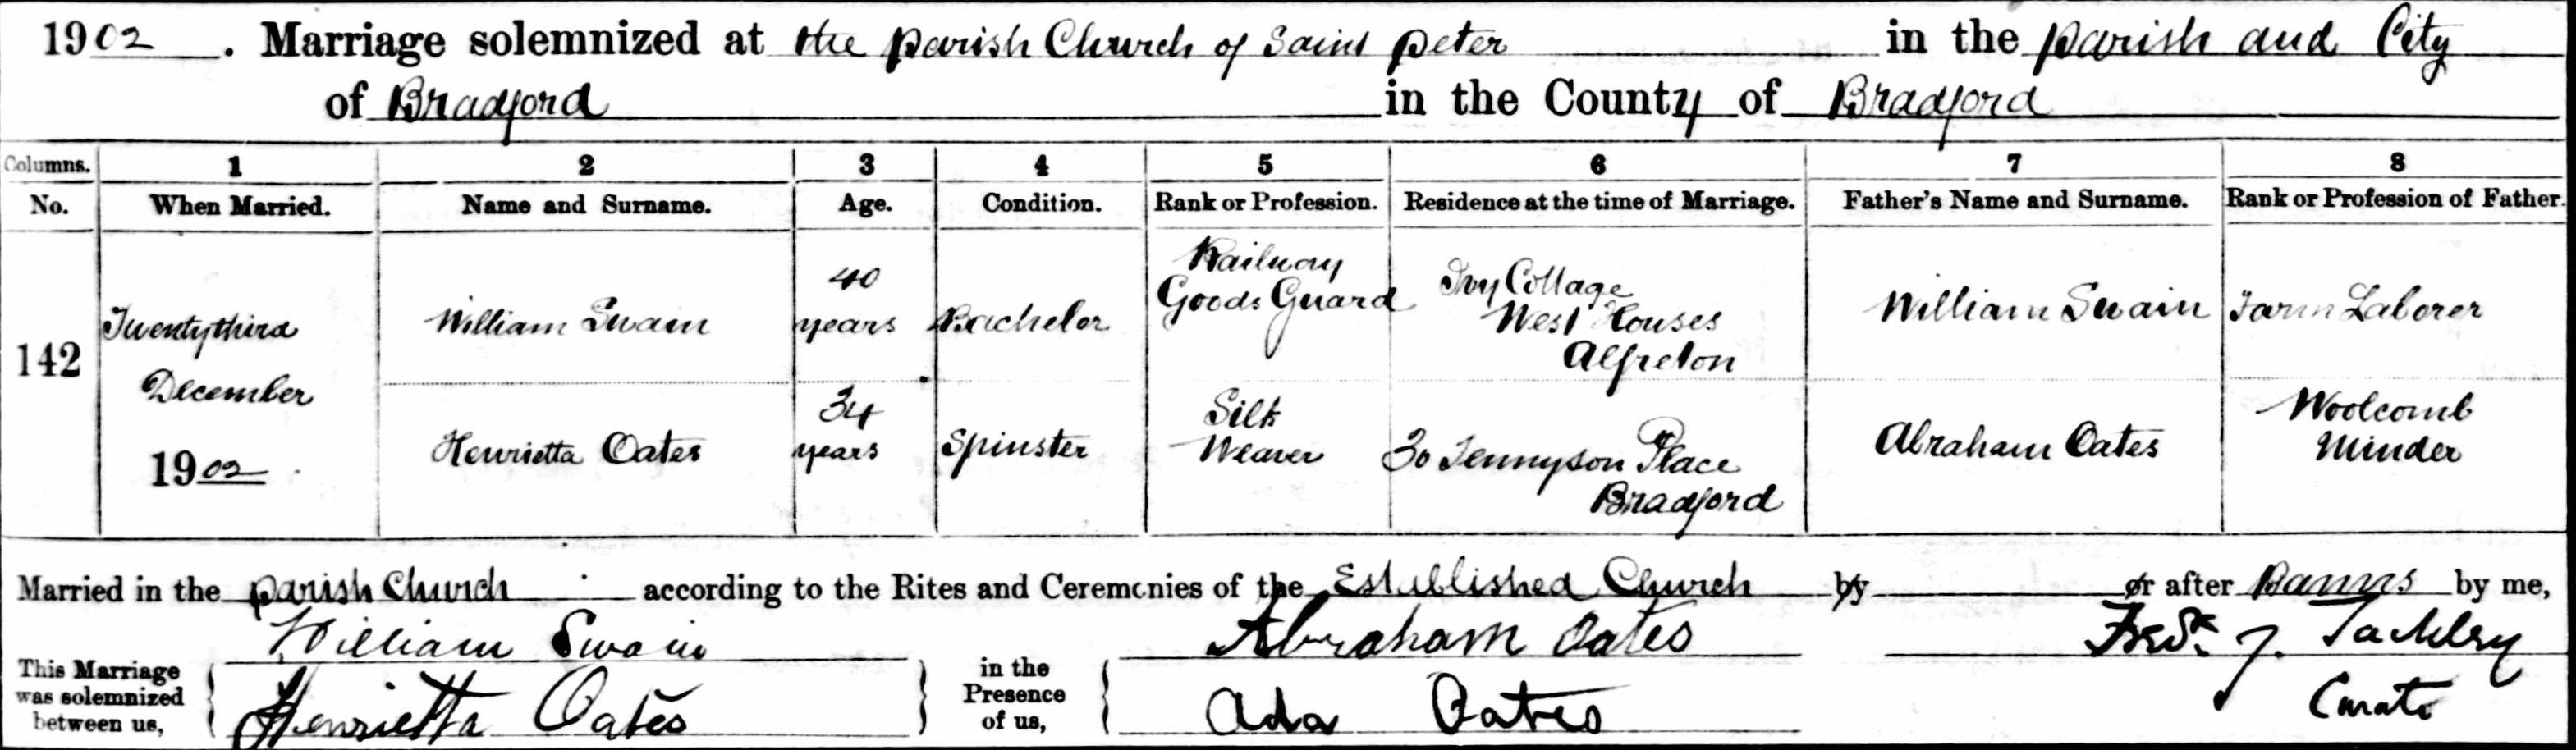 1902. Marriage solemnized at the Parish Church of Saint Peter in the Parish and City
of Bradford in the County of Bradford
Columns. 1 2 3 4 5 6 7 8
No. When Married. Name and Surname. Age. Condition. Rank or Profession. Residence at the time of Marriage. Father's Name and Surname. Rank or Profession of Father.
142
Twentythird
December
1902
William Swain
40
years
Bachelor
Railway
Goods Guard
Ivy Cottage
West Houses
Alfreton
William Swain
Farm Laborer
Henrietta Oates
34
years
Spinster
Silk
Weaver
30 Tennyson Place
Bradford
Abraham Oates
Woolcomb
Minder
Married in the Parish Church according to the Rites and Ceremonies of the Established Church by or after Banns by me,
This Marriage
was solemnized
between us,
William Swain
Henrietta Oates
in the
Presence
of us,
Abraham Oates
Ada Oates
Fredk. J. Tackley
Curate